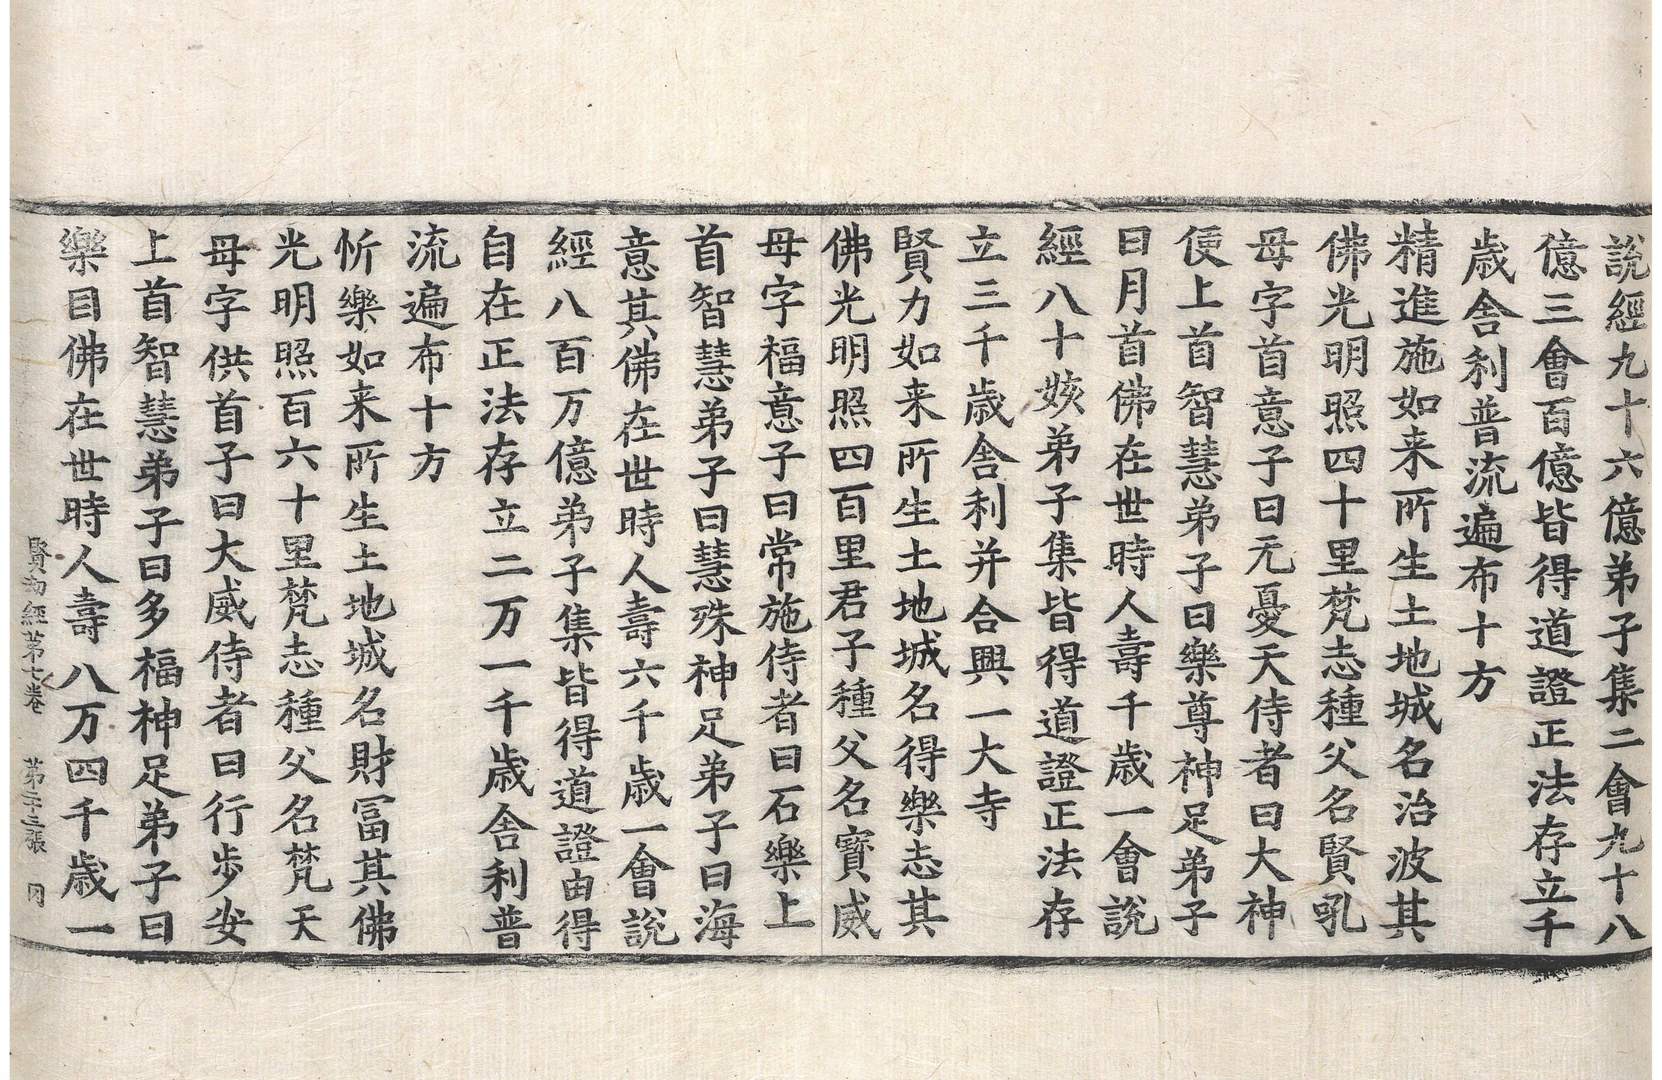 說經九十六億弟子集二會九十八
億三會百億皆得道證正法存立千
歳舎利普流遍布十方
精進施如来所生土地城名治波其
佛光明照四十里梵志種父名賢吼
母字首意子曰无憂天侍者曰大神
便上首智慧弟子曰樂尊神足弟子
曰月首佛在世時人壽千歳一會說
經八十姟弟子集皆得道證正法存
立三千歳舎利并合興一大寺
賢力如来所生土地城名得樂志其
佛光明照四百里君子種父名寶威
母字福意子曰常施侍者曰石樂上
首智慧弟子曰慧殊神足弟子曰海
意其佛在世時人壽六千歳一會說
經八百万億弟子集皆得道證由得
自在正法存立二万一千歳舎利普
流遍布十方
忻樂如来所生土地城名財冨其佛
光明照百六十里梵志種父名梵天
母字供首子曰大威侍者曰行歩安
上首智慧弟子曰多福神足弟子曰
樂目佛在世時人壽八万四千歳一
賢劫經第七卷 第二十三張 冈